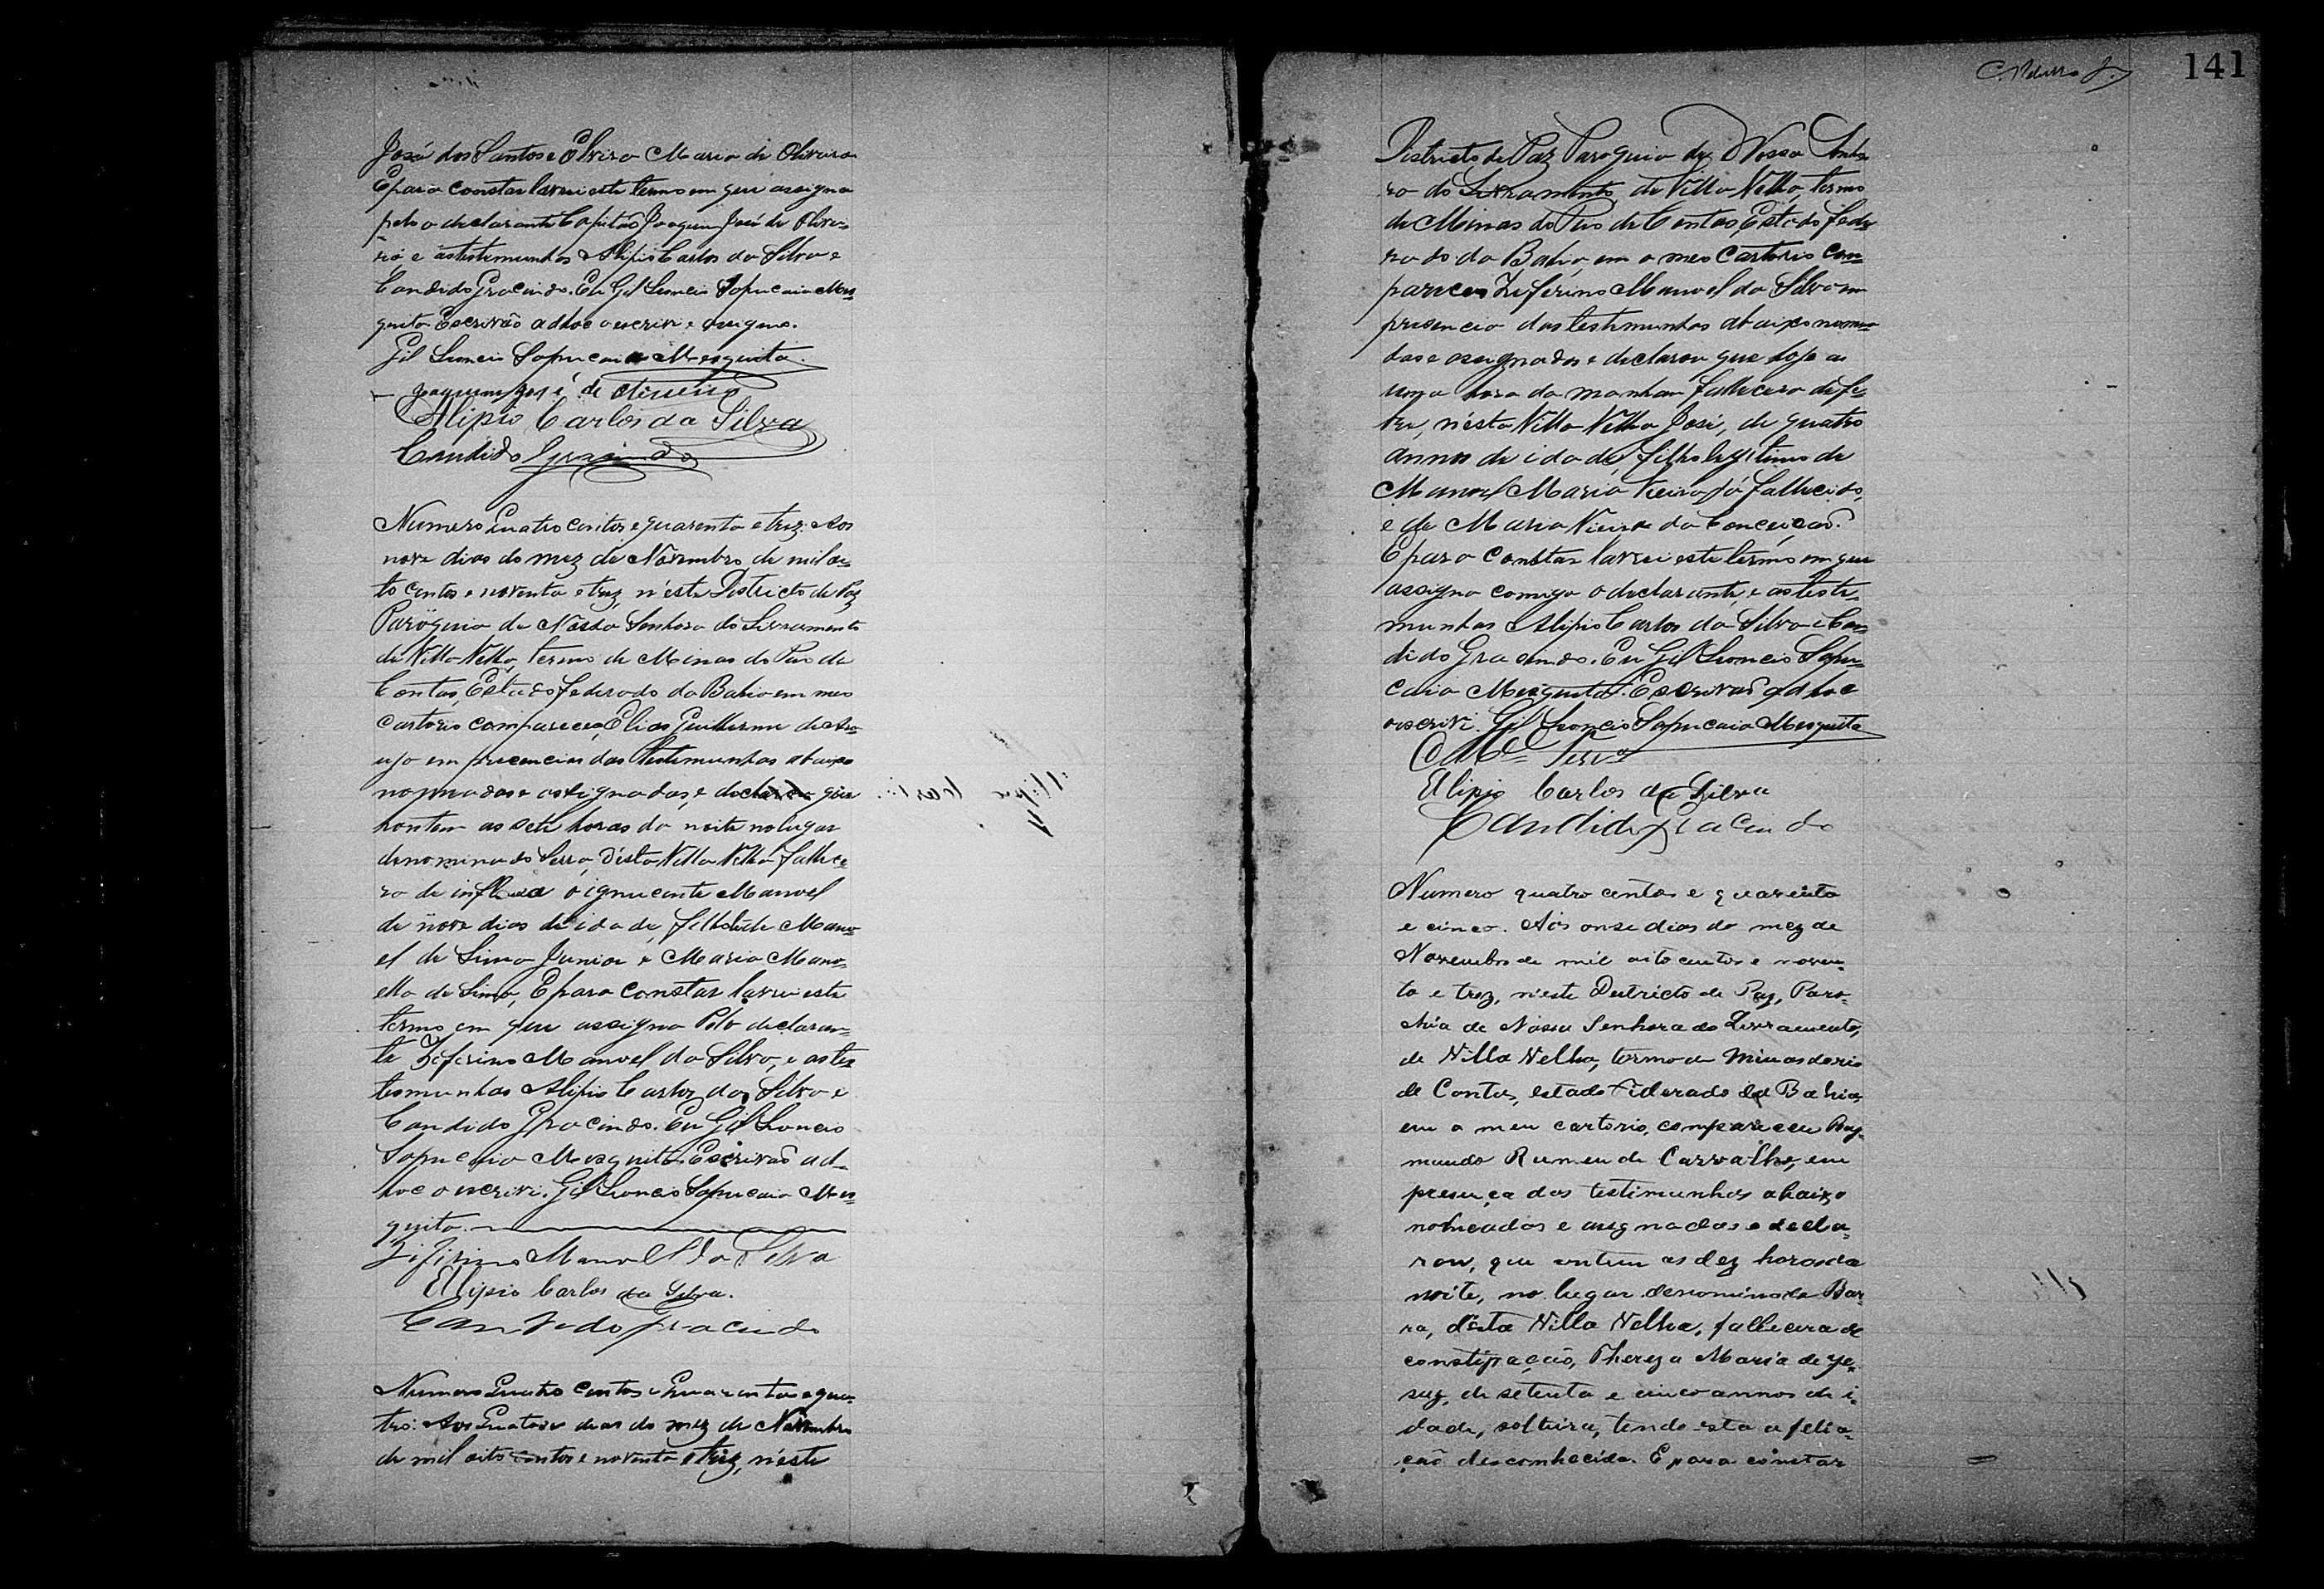 José dos Santos e Elvira Maria de Oliveira
E para constar lavrei este termo em que assigna
pelo o declarante Capitão Joaquim José de Olivei-
ra e as testemunhas Alipio Carlos da Silva e
Candido Gracindo. Eu Gil Leoncio Sapucaia Mes-
quita Escrivão ad hoc o escrivi e assigno.
Gil Leoncio Sapucaia Mesquita.
Joaquim José de Oliveira
Alipio Carlos da Silva
Candido Gracindo
Numero Quatro centos e quarenta e trez. Aos
nove dias do mez de Novembro de mil oi-
to centos e noventa e trez, n'este Districto de Paz
Paroquia de Nossa Senhora do Livramento
de Villa Velha, termo de Minas do Rio de
Contas, Estado federado da Bahia em meo
Cartorio compareceo Elias Guilherme de Ara-
ujo em presencia das testemunhas abaixo
nomeadas e assignadas, e declarou que
hontem as sete horas da noite no lugar
denominado Serra, d'esta Villa Velha fallece-
ro de o ignucente Manoel
de nove dias de idade, filho de Mano-
el de Lima Junior e Maria Mano-
ella de Lima, E para constar lavrei este
termo em que assigna Pelo declaran-
te Zeferino Manoel da Silva, e as tes-
temunhas Alipio Carlos da Silva e
Candido Gracindo. Eu Gil Leoncio
Sapucaia Mesquita Escrivão ad-
hoc o escrivi. Gil Leoncio Sapucaia Mes-
quita.
Zifirino Manoel da Silva
Alipio Carlos da Silva.
Candido Gracindo
Numero Quatro centos e Quarenta e qua-
tro: Aos Quatorze dias do mez de Novembro
de mil oito centos e noventa e trez, n'este
141
Districto de Paz Paroquia de Nossa Senho-
ra do Livramento de Villa Velha, termo
de Minas do Rio de Contas, Estado fede-
rado da Bahia, em o meo Cartorio com-
pareceo Zeferino Manoel da Silva em
presencia das testemunhas abaixo nomea-
das e assignadas e declarou que hoje as
uma hora da manhan fallecera de fe-
bre, n'esta Villa Velha José, de quatro
annos de idade, filho legitimo de
Manoel Maria Vieira já fallecido,
e de Maria Vieira da Conceição.
E para constar lavrei este termo em que
assigna comigo o declarante, e as teste-
munhas Alipio Carlos da Silva e Can-
dido Gracindo. Eu Gil Leoncio Sapu-
caia Mesquita. Escrivão ad hoc
o escrivi. Gil Leoncio Sapucaia Mesquita
Alipio Carlos da Silva
Candido Gracindo
Numero quatro centos e quarenta
e cinco. Aos onze dias do mez de
Novembro de mil oito centos e noven-
ta e trez, n'este Destricto de Paz, Paro-
chia de Nossa Senhora do Livramento,
de Villa Velha, termo de Minas do rio
de Contas, estado Federado da Bahia,
em o meu cartorio, compareceu Ray-
mundo de Carvalho, em
presença das testimunhas abaixo
nomeadas e assignadas e decla-
rou, que ontem as dez horas da
noite, no lugar denominado Bar-
ra, d'esta Villa Velha, fallecera de
constipação, Thereza Maria de Je-
suz, de setenta e cinco annos de i-
dade, solteira, tendo esta a felia-
ção desconhecida. E para constar